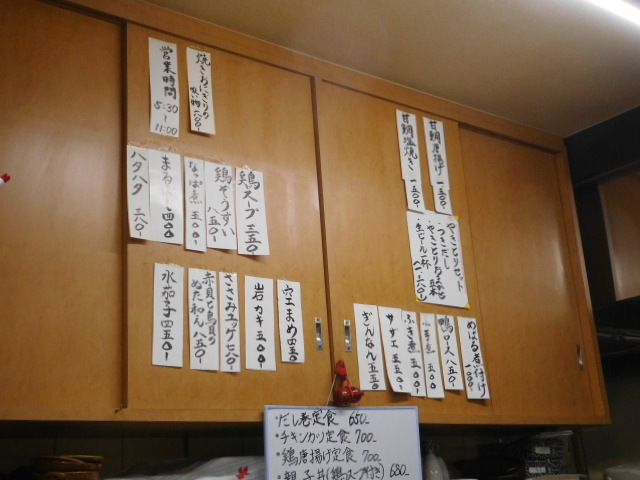 営業時間
5:30
～
11:00
焼きおにぎりの
吸い物 八〇〇-
甘鯛塩焼き 一五〇〇-
甘鯛唐揚げ 一五〇〇-
ハタハタ 三八〇-
四〇〇
なっぱ煮 五〇〇-
鶏ぞうすい 八五〇-
鶏スープ 三五〇
やきとりセット
・つきだし
・やきとりおまかせ 五本
・生ビール一杯
一、三八〇-
水茄子 四五〇-
赤貝と鳥貝の
ぬた和え 八五〇-
ささみユッケ 七八〇-
岩カキ 五〇〇-
空豆まめ 四五〇
ぎんなん 五五〇
サザエ 五五〇-
ふき煮 五〇〇-
五〇〇-
鴨ロース 八五〇-
めばる煮付け
・だし巻定食 650-
・チキンカツ定食 700-
・鶏唐揚げ定食 700-
・親子丼(鶏スープ付き) 680-